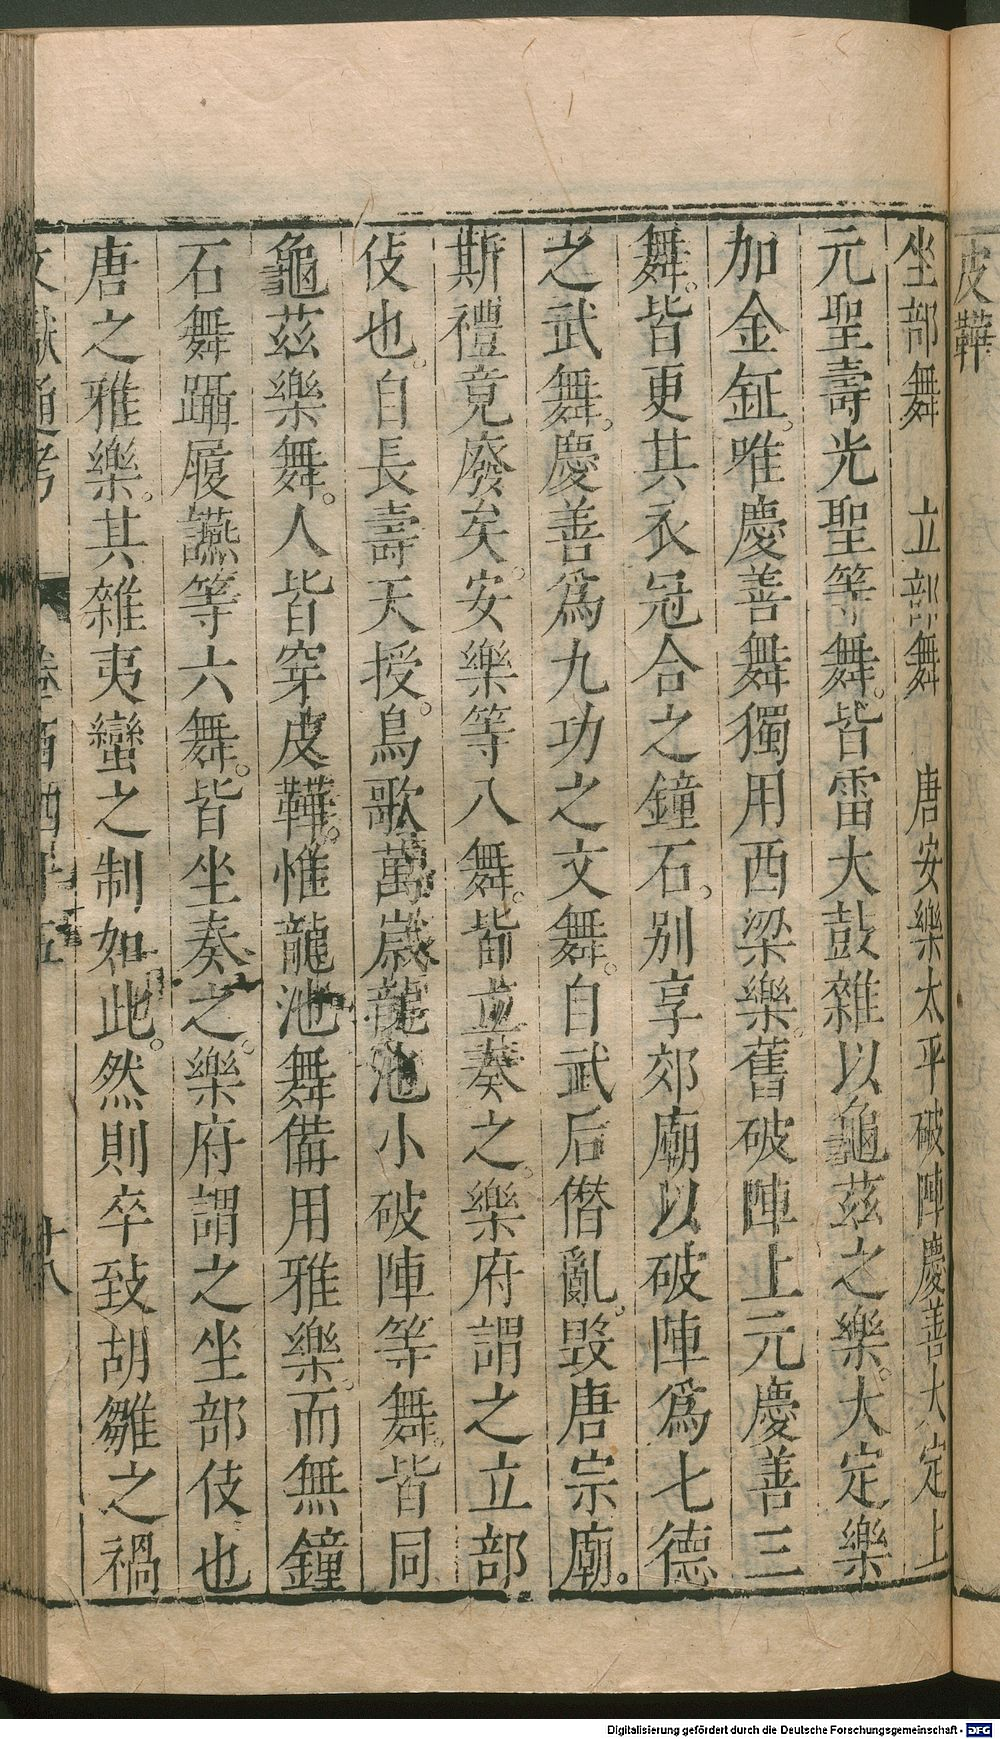 皮鞾
坐部舞　立部舞　唐安樂太平破陣慶善大定上
元聖壽光聖等舞。皆雷大鼓雜以龜茲之樂。大定樂
加金鉦。唯慶善舞獨用西梁樂。舊破陣上元慶善三
舞。皆更其衣冠合之鐘石。別享郊廟以破陣爲七德
之武舞。慶善爲九功之文舞。自武后僭亂。毀唐宗廟。
斯禮竟廢矣。安樂等八舞。皆立奏之。樂府謂之立部
伎也。自長壽天授。鳥歌萬歲龍池小破陣等舞。皆同
龜茲樂舞。人皆穿皮鞾。惟龍池舞備用雅樂。而無鐘
石舞躡履讌等六舞。皆坐奏之。樂府謂之坐部伎也
唐之雅樂。其雜夷蠻之制如此。然則卒致胡雛之禍
文獻通考 卷一百四十五 廿八
Digitalisierung gefördert durch die Deutsche Forschungsgemeinschaft - DFG